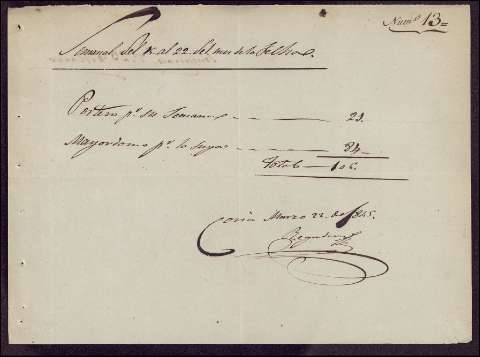 Num.º 13=
Semanal del 15 al 22 del mes de la fecha.
p.r su Semana 21.
Mayordomo p.r lo suyo 84
Total 106.
Coria Marzo 22 de 1845.